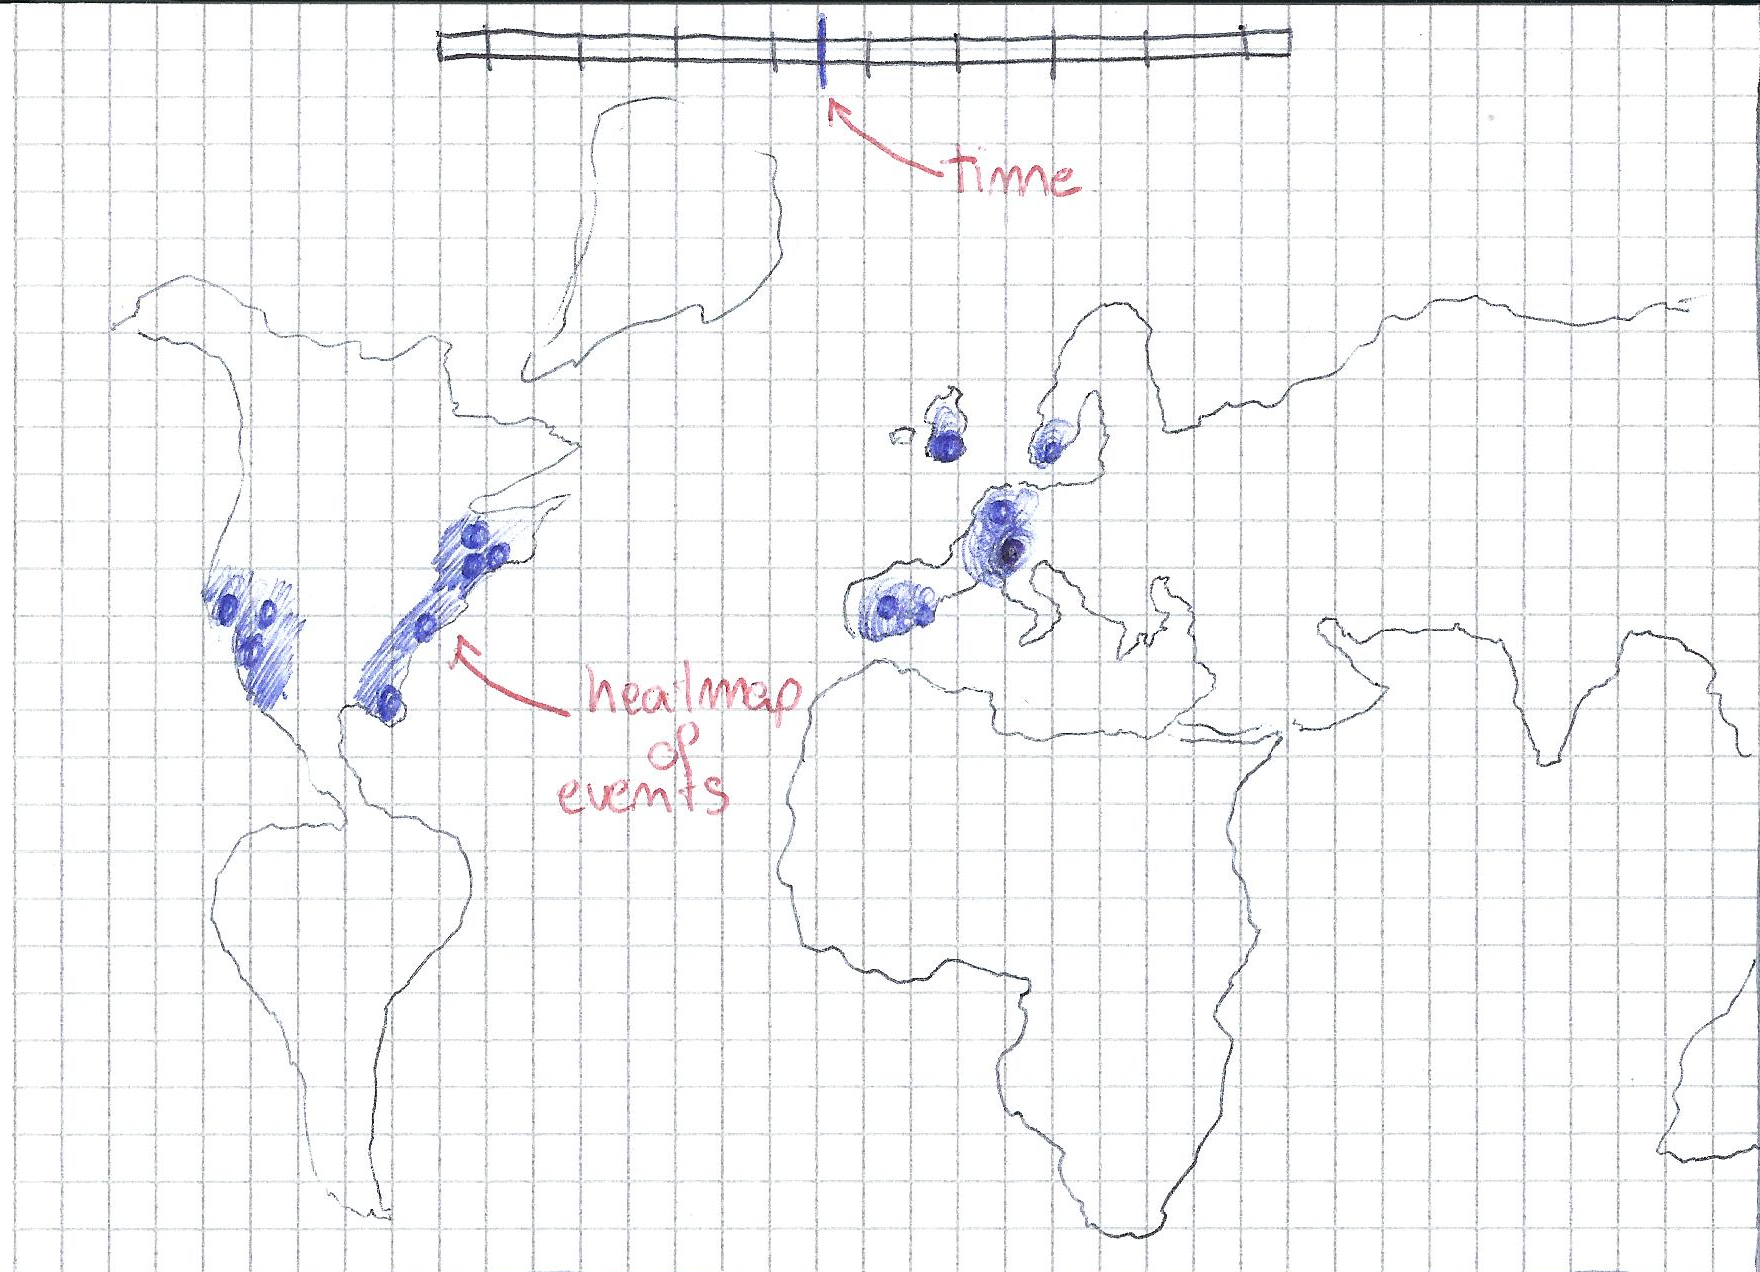 time
heatmap
of
events